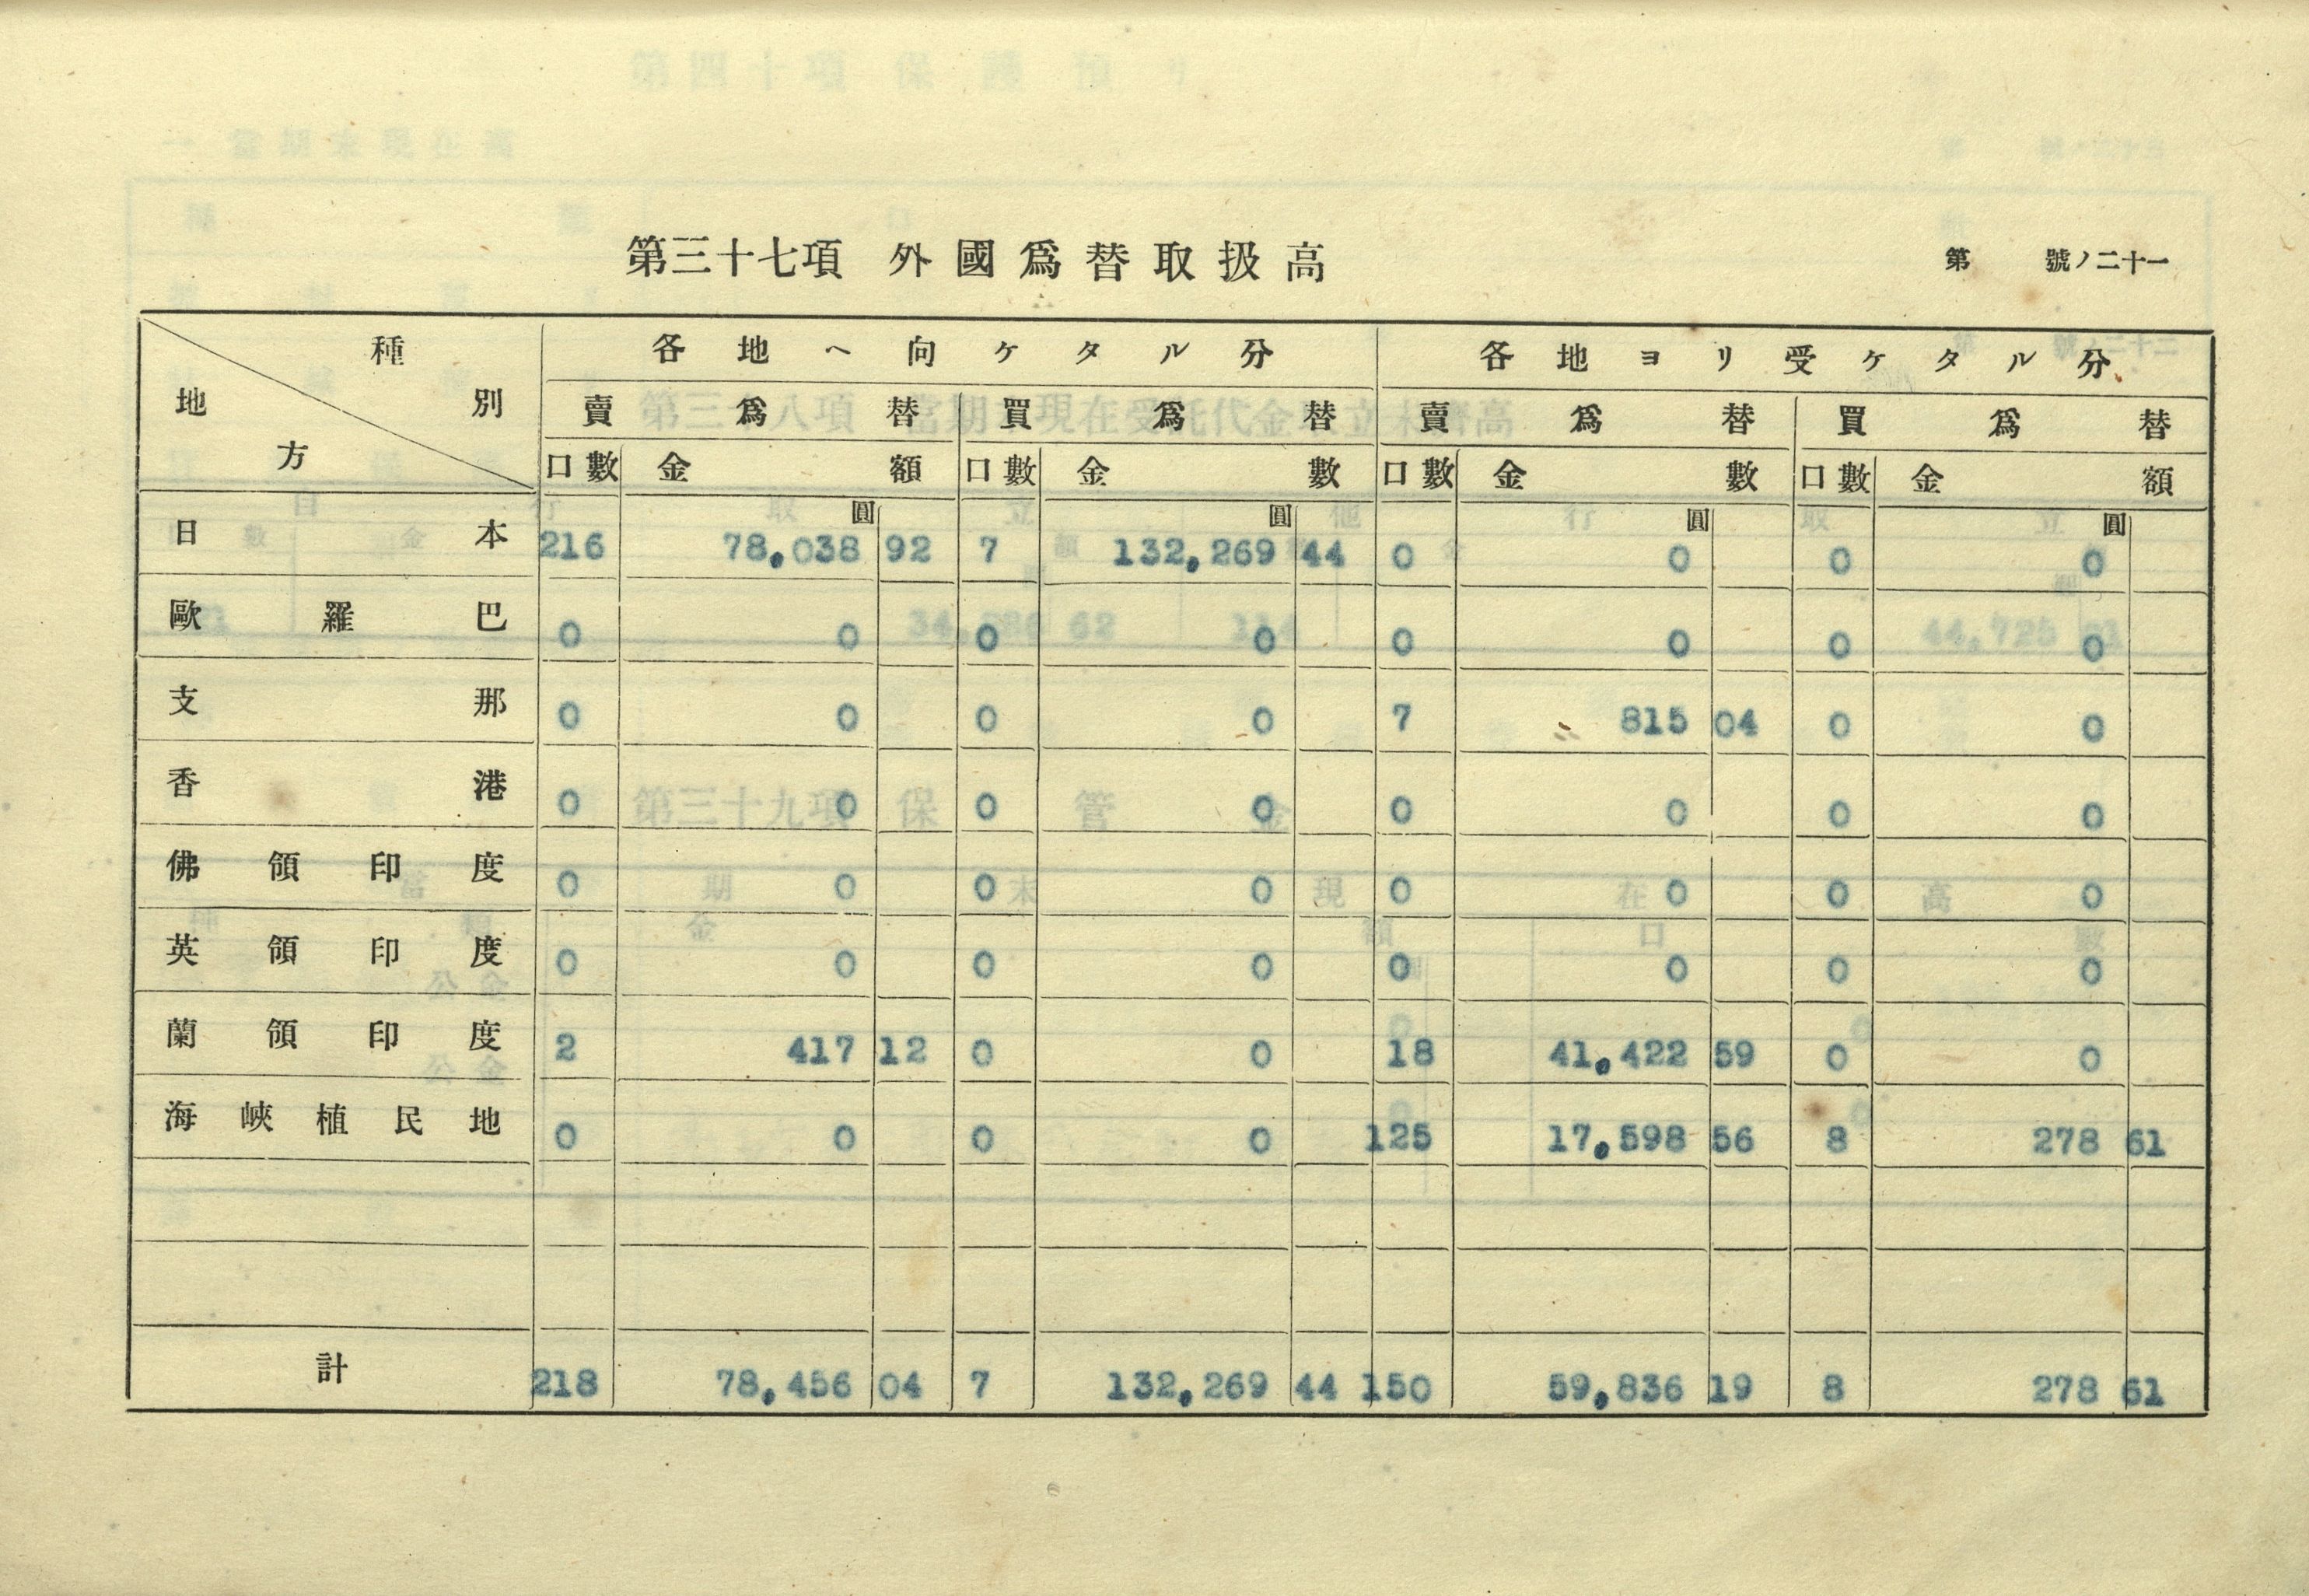 第三十七項 外國爲替取扱高
第 號ノ二十一
種別 地方 各地ヘ向ケタル分 各地ヨリ受ケタル分
賣爲替 買爲替 賣爲替 買爲替
口數 金額 口數 金數 口數 金數 口數 金額
圓 圓 圓 圓
日本 216 78,038 92 7 132,269 44 0 0 0 0
歐羅巴 0 0 0 0 0 0 0 0
支那 0 0 0 0 7 815 04 0 0
香港 0 0 0 0 0 0 0 0
佛領印度 0 0 0 0 0 0 0 0
英領印度 0 0 0 0 0 0 0 0
蘭領印度 2 417 12 0 0 18 41,422 59 0 0
海峽植民地 0 0 0 0 125 17,598 56 8 278 61
計 218 78,456 04 7 132,269 44 150 59,836 19 8 278 61